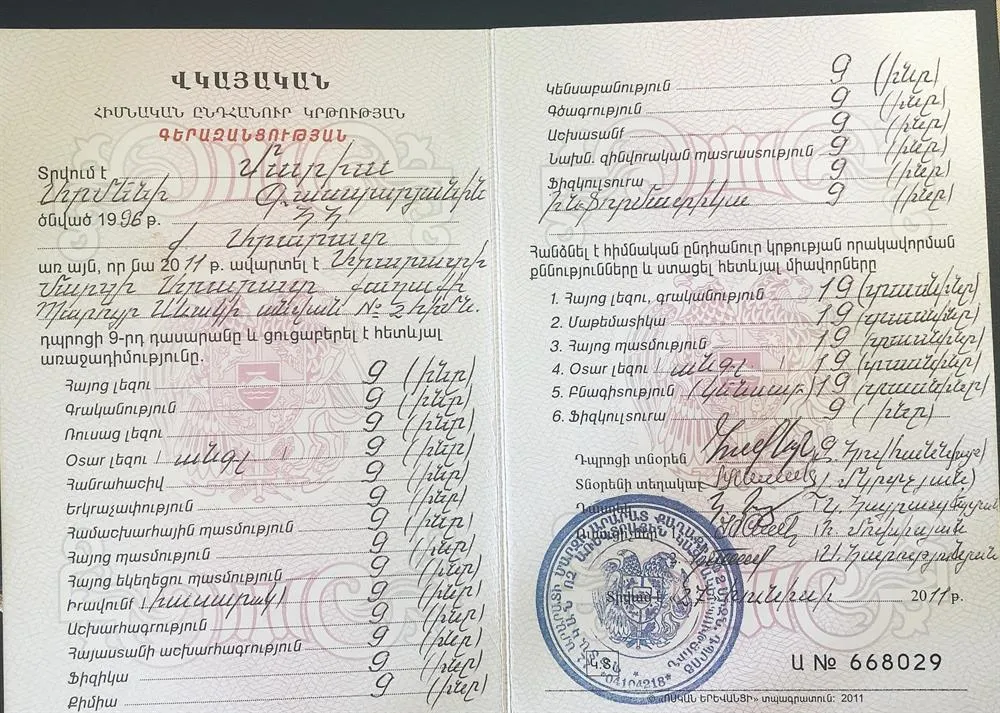 ՎԿԱՅԱԿԱՆ
ՀԻՄՆԱԿԱՆ ԸՆԴՀԱՆՈՒՐ ԿՐԹՈՒԹՅԱՆ
ԳԵՐԱԶԱՆՑՈՒԹՅԱՆ
Տրվում է Մարիա
Արմենի Գասպարյանին
ծնված 1996 թ. ՀՀ
ք. Արարատ
առ այն, որ նա 2011 թ. ավարտել է Արարատի
մարզի Արարատ քաղաքի
Պարույր Սևակի անվան № 2 հիմն.
դպրոցի 9-րդ դասարանը և ցուցաբերել է հետևյալ
առաջադիմությունը.
Հայոց լեզու 9 (իներ)
Գրականություն 9 (իներ)
Ռուսաց լեզու 9 (իներ)
Օտար լեզու ( անգլ ) 9 (իներ)
Հանրահաշիվ 9 (իներ)
Երկրաչափություն 9 (իներ)
Համաշխարհային պատմություն 9 (իներ)
Հայոց պատմություն 9 (իներ)
Հայոց եկեղեցու պատմություն 9 (իներ)
Իրավունք (հասարակ) 9 (իներ)
Աշխարհագրություն 9 (իներ)
Հայաստանի աշխարհագրություն 9 (իներ)
Ֆիզիկա 9 (իներ)
Քիմիա 9 (իներ)
Կենսաբանություն 9 (իներ)
Գծագրություն 9 (իներ)
Աշխատանք 9 (իներ)
Նախն. զինվորական պատրաստություն 9 (իներ)
Ֆիզկուլտուրա 9 (իներ)
Ինֆորմատիկա 9 (իներ)
Հանձնել է հիմնական ընդհանուր կրթության որակավորման
քննությունները և ստացել հետևյալ միավորները
1. Հայոց լեզու, գրականություն 19 (տասնիներ)
2. Մաթեմատիկա 19 (տասնիներ)
3. Հայոց պատմություն 19 (տասնիներ)
4. Օտար լեզու ( անգլ ) 19 (տասնիներ)
5. Բնագիտություն (կենսաբ.) 19 (տասնիներ)
6. Ֆիզկուլտուրա 9 (իներ)
Դպրոցի տնօրեն
Տնօրենի տեղակալ
Տրված է 27 հունիսի 2011 թ.
Կ.Տ.
*04104218*
Ա № 668029
© «ՈՍԿԱՆ ԵՐԵՎԱՆՑԻ» տպագրատուն: 2011